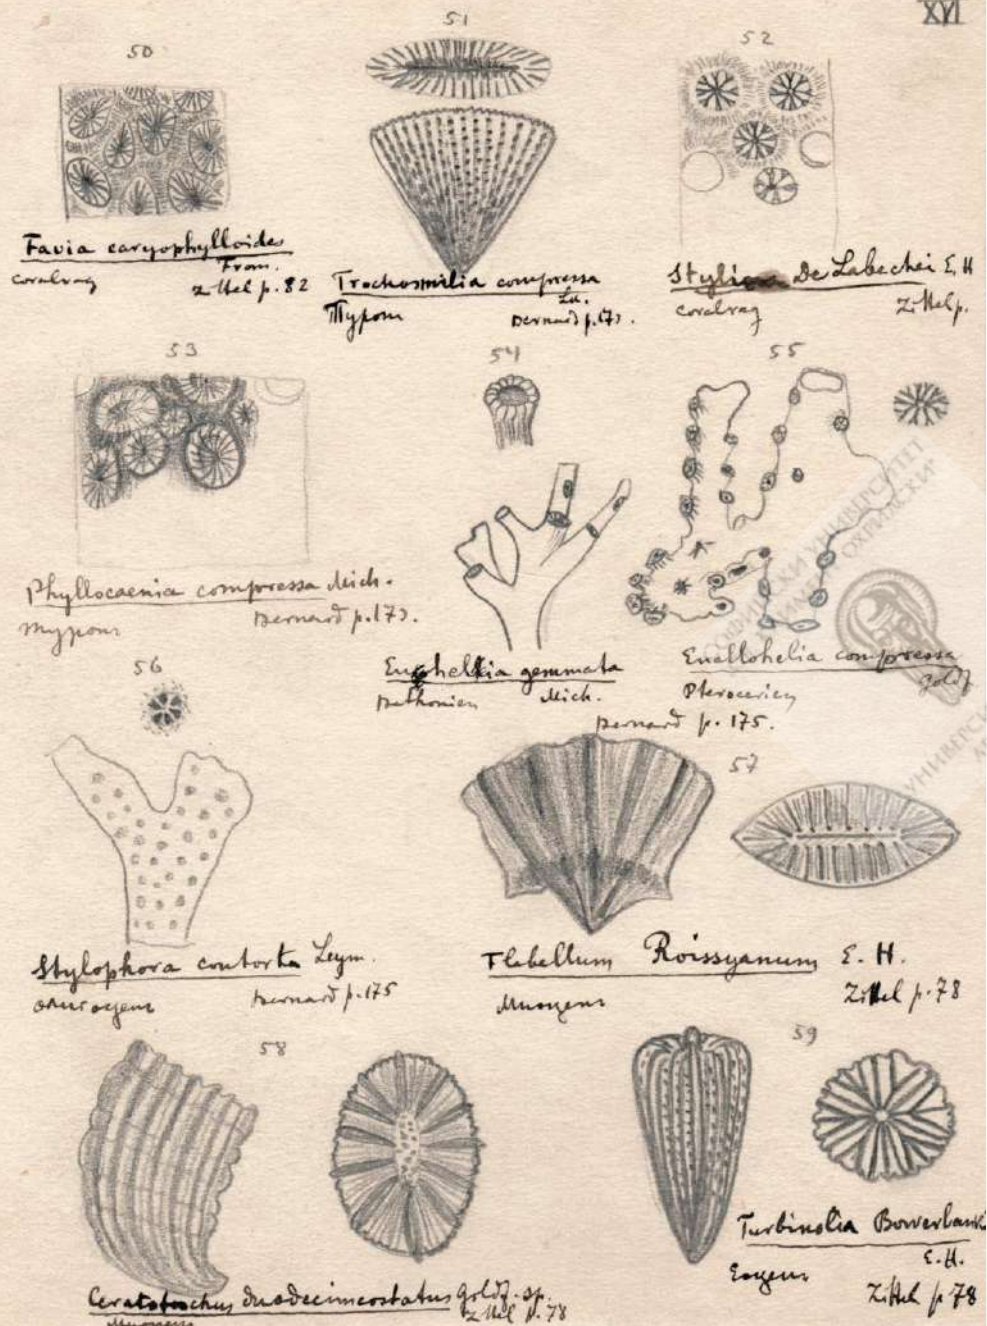 XVI
50
Favia caryophylloides
From.
coralrag Zittel p. 82
51
Trochosmilia compressa
Lk.
Турон Bernard p. 173.
52
Stylina De Labechei E. H
coralrag Zittel p.
53
Phyllocaenia compressa Mich.
Турон Bernard p. 173.
54
Euphellia gemmata
Bathonien Mich.
Bernard p. 175.
55
Enallohelia compressa
Goldf
Pterocerien
56
Stylophora contorta Leym.
Олигоцен Bernard p. 175
57
Flabellum Roissyanum E. H.
Миоцен Zittel p. 78
58
Ceratotrochus duodecimcostatus Goldf. sp.
Zittel p. 78
Миоцен
59
Turbinolia Bowerbanki
E. H.
Еоцен Zittel p 78
СОФИЙСКИ УНИВЕРСИТЕТ
ОХРИДСКИ